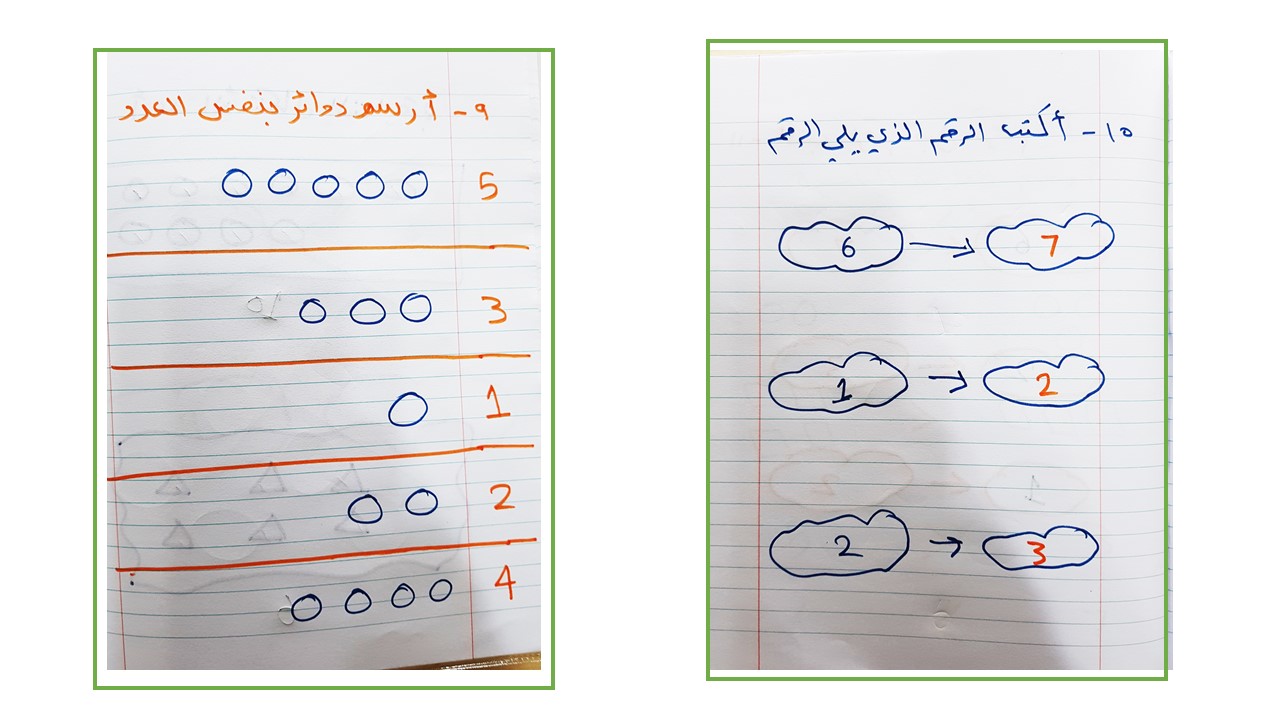 ٩- أرسم دوائر بنفس العدد
5
3
1
2
4
١٠- أكتب الرقم الذي يلي الرقم
6 → 7
1 → 2
2 → 3